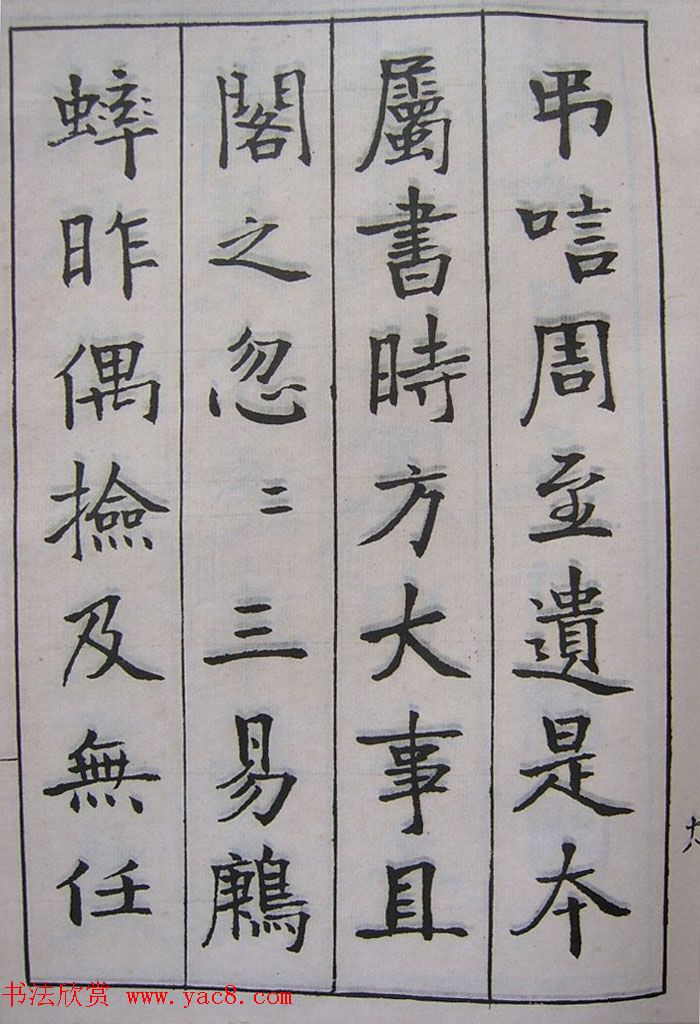 弔唁周至遺是本
屬書時方大事且
閣之忽〻三易鷓
蟀昨偶撿及無任
六
书法欣赏 www.yac8.com